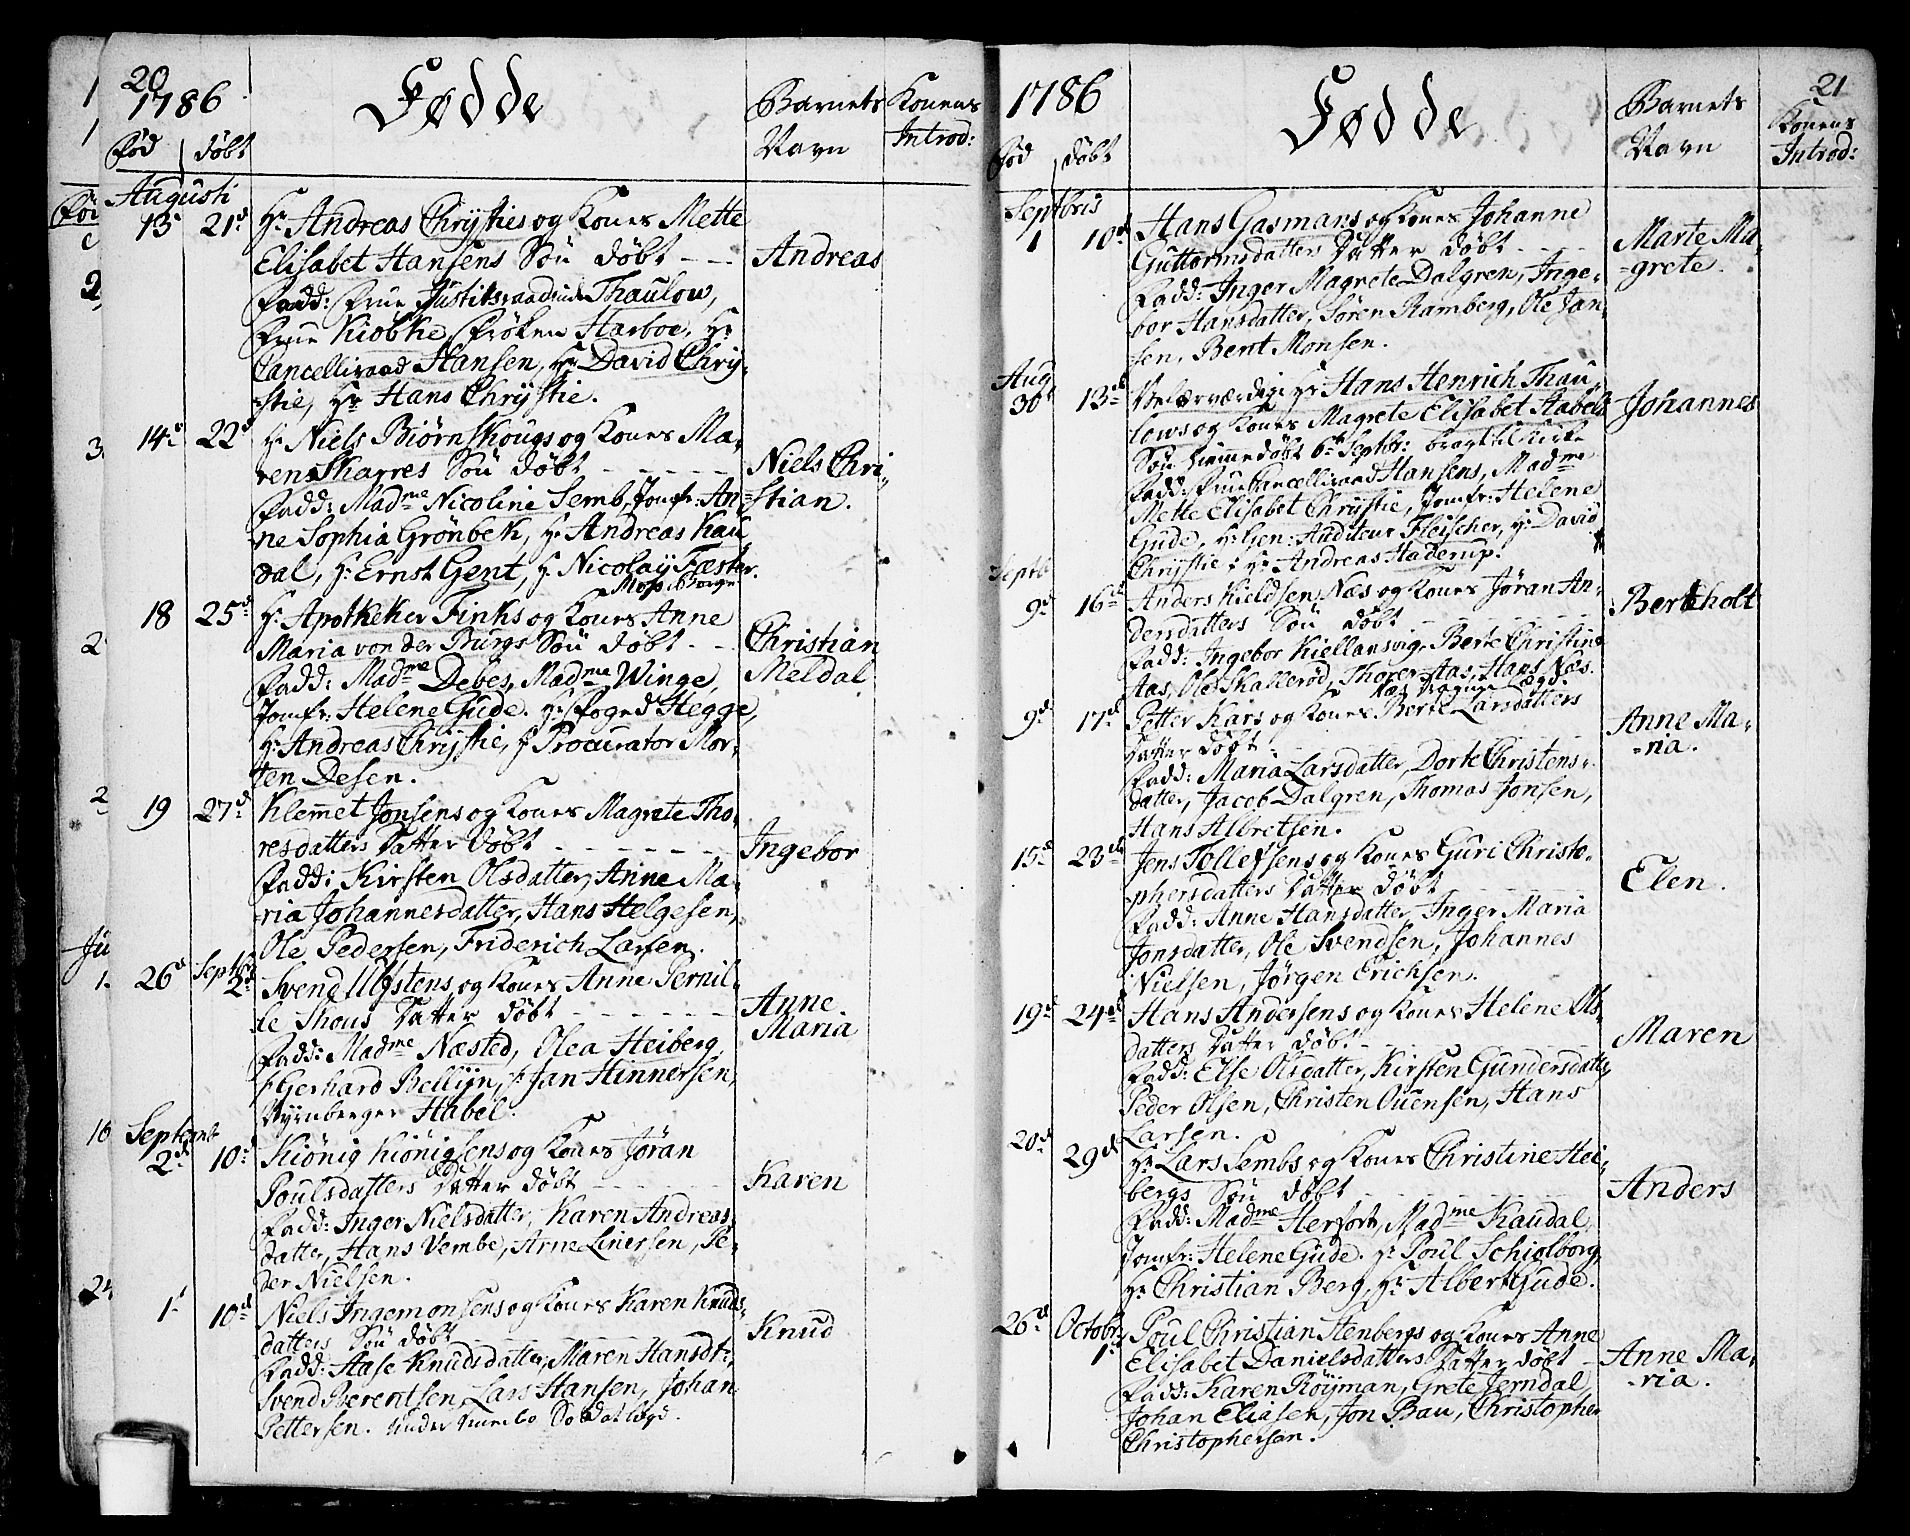 20
1786
Fødde
Barnets
Navn
Konens
Introd:
Fød
døbt
Augusti
13 21d
Hr Andreas Chrysties og Kones Mette
Elisabet Hansens Søn døbt
Andreas
Fadd: Frue Justitsraadinde Thaulow,
Frue Kiöbke, Fröken Harboe, Hr
Cancelliraad Hansen, Hr David Chry-
stie, Hr Hans Chrystie.
14d 22d
Hr Niels Biørnskougs og Kones Ma-
rens Skarres Søn døbt
Niels Chri-
stian.
Fadd: Madme Nicoline Semb, Jomfr: An-
ne Sophia Grönbek, Hr Andreas Kau
dal, Hr Ernst Gent, Hr Nicolay Fæster.
18 25d
Hr Apotheker Finks og Kones Anne
Maria von der Burgs Søn døbt
Christian
Meldal
Fadd: Madme Debes, Madme Winge,
Jomfr: Helene Gude. Hr Foged Hegge,
Hr Andreas Chrystie, Hr Procurator Mor-
ten Desen.
19 27d
Klemet Jonsens og Kones Magrete Tho-
resdatters Datter døbt
Ingebor
Fadd: Kirsten Olsdatter, Anne Ma-
ria Johannesdatter, Hans Helgesen,
Ole Pedersen, Friderich Larsen.
26d Septbr 2d
Svend Ulfstens og Kones Anne Pernil-
le Thous Datter døbt
Anne
Maria
Fadd: Madme Næsted, Olea Heiberg
Hr Gerhard Bellijn, Hr Jan Hinnersen,
Nyrnberger Habel.
Septembr
2d 10d
Kiönig Kiönigsens og Kones Jöran
Poulsdatters Datter døbt
Karen
Fadd: Inger Nielsdatter, Karen Andreas
datter, Hans Vembe, Arne Linersen, Pe-
der Nielsen.
1d 10d
Niels Ingemonsens og Kones Karen Knuds-
datters Søn døbt
Knud
Fadd: Aase Knudsdatter, Maren Hansdtr,
Svend Berentsen, Lars Hansen, Johan
Pettersen.
21
1786
Fødde
Barnets
Navn
Konens
Introd:
Fød
døbt
Septbris
1 10d
Hans Gasmans og Kones Johanne
Guttormsdatters Datter døbt
Marte Ma-
grete.
Fadd: Inger Magrete Dalgren, Inge-
bor Hansdatter, Søren Ramberg, Ole Jan
sen, Bent Monsen.
Aug
30 13d
Velærværdige Hr Hans Henrich Thau-
lows og Kones Magrete Elisabet Stabels
Søn hiemmedøbt 6te Septbr: bragt til Kirke
Johannes
Fadd: Frue Cancelliraad Hansens, Madme
Mette Elisabet Chrystie, Jomfr: Helene
Gude, Hr Gen: Auditeur Fleischer, Hr David
Chrystie, Hr Andreas Haderup.
Septb
9d 16d
Anders Kieldsen Næs og Kones Jøran An-
dersdatters Søn døbt
Bertholt
Fadd: Ingebor Kiellansvig, Berte Christine
Aas, Ole Skallerød, Thorer Aas, Hans Næs.
9d 17d
Petter Kars og Kones Berte Larsdatters
Datter døbt
Anne Ma-
ria.
Fadd: Maria Larsdatter, Dorte Christens-
datter, Jacob Dalgren, Thomas Jonsen,
Hans Albretsen.
15d 23d
Jens Tollefsens og Kones Guri Christo-
phersdatters Datter døbt
Elen.
Fadd: Anne Hansdatter, Inger Maria
Jonsdatter, Ole Svendsen, Johannes
Nielsen, Jörgen Erichsen.
19d 24d
Hans Andersens og Kones Helene Ols-
datters Datter døbt
Maren
Fadd: Else Olsdatter, Kirsten Gundersdatter
Peder Olsen, Christen Ouensen, Hans
Larsen.
20d 29d
Hr Lars Sembs og Kones Christine Hei-
bergs Søn døbt
Anders
Fadd: Madme Herfort, Madme Kaudal,
Jomfr: Helene Gude. Hr Poul Schiolborg,
Hr Christian Berg, Hr Albert Gude.
26d Octobr 1d
Poul Christian Stenbergs og Kones Anne
Elisabet Danielsdatters Datter døbt
Anne Ma-
ria.
Fadd: Karen Röijman, Grete Jerndal
Johan Eliasen, Jon Bau, Christopher
Christophersen.